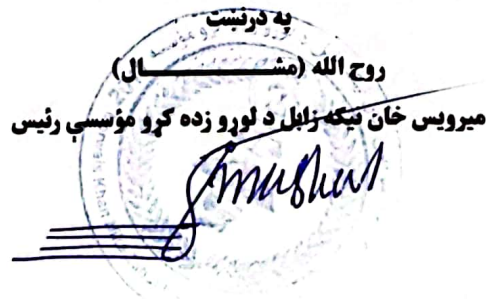 په درنښت
روح الله (مشــــــــــــال)
میرویس خان نیکه زابل د لوړو زده کړو مؤسسې رئیس